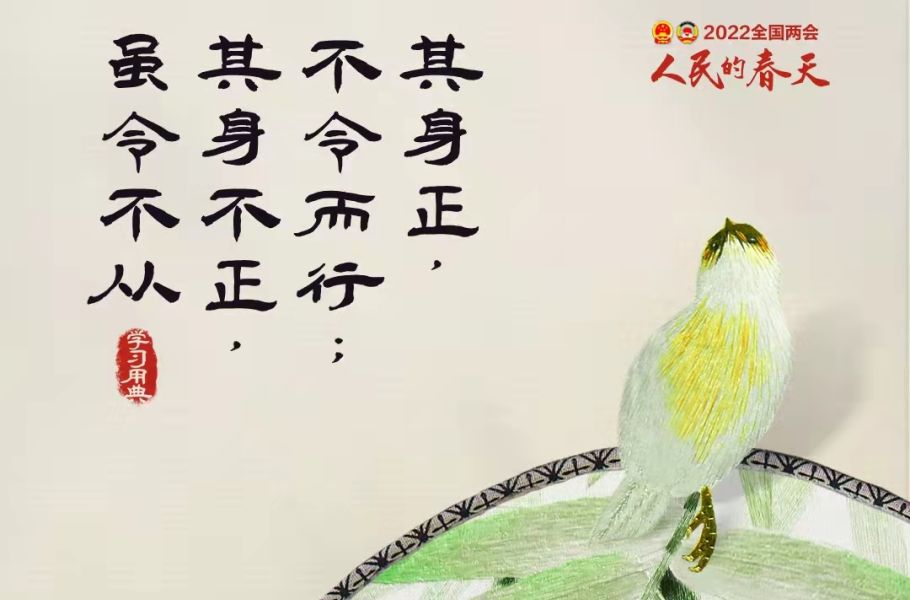 其身正，
不令而行；
其身不正，
虽令不从
学习用典
2022全国两会
人民的春天